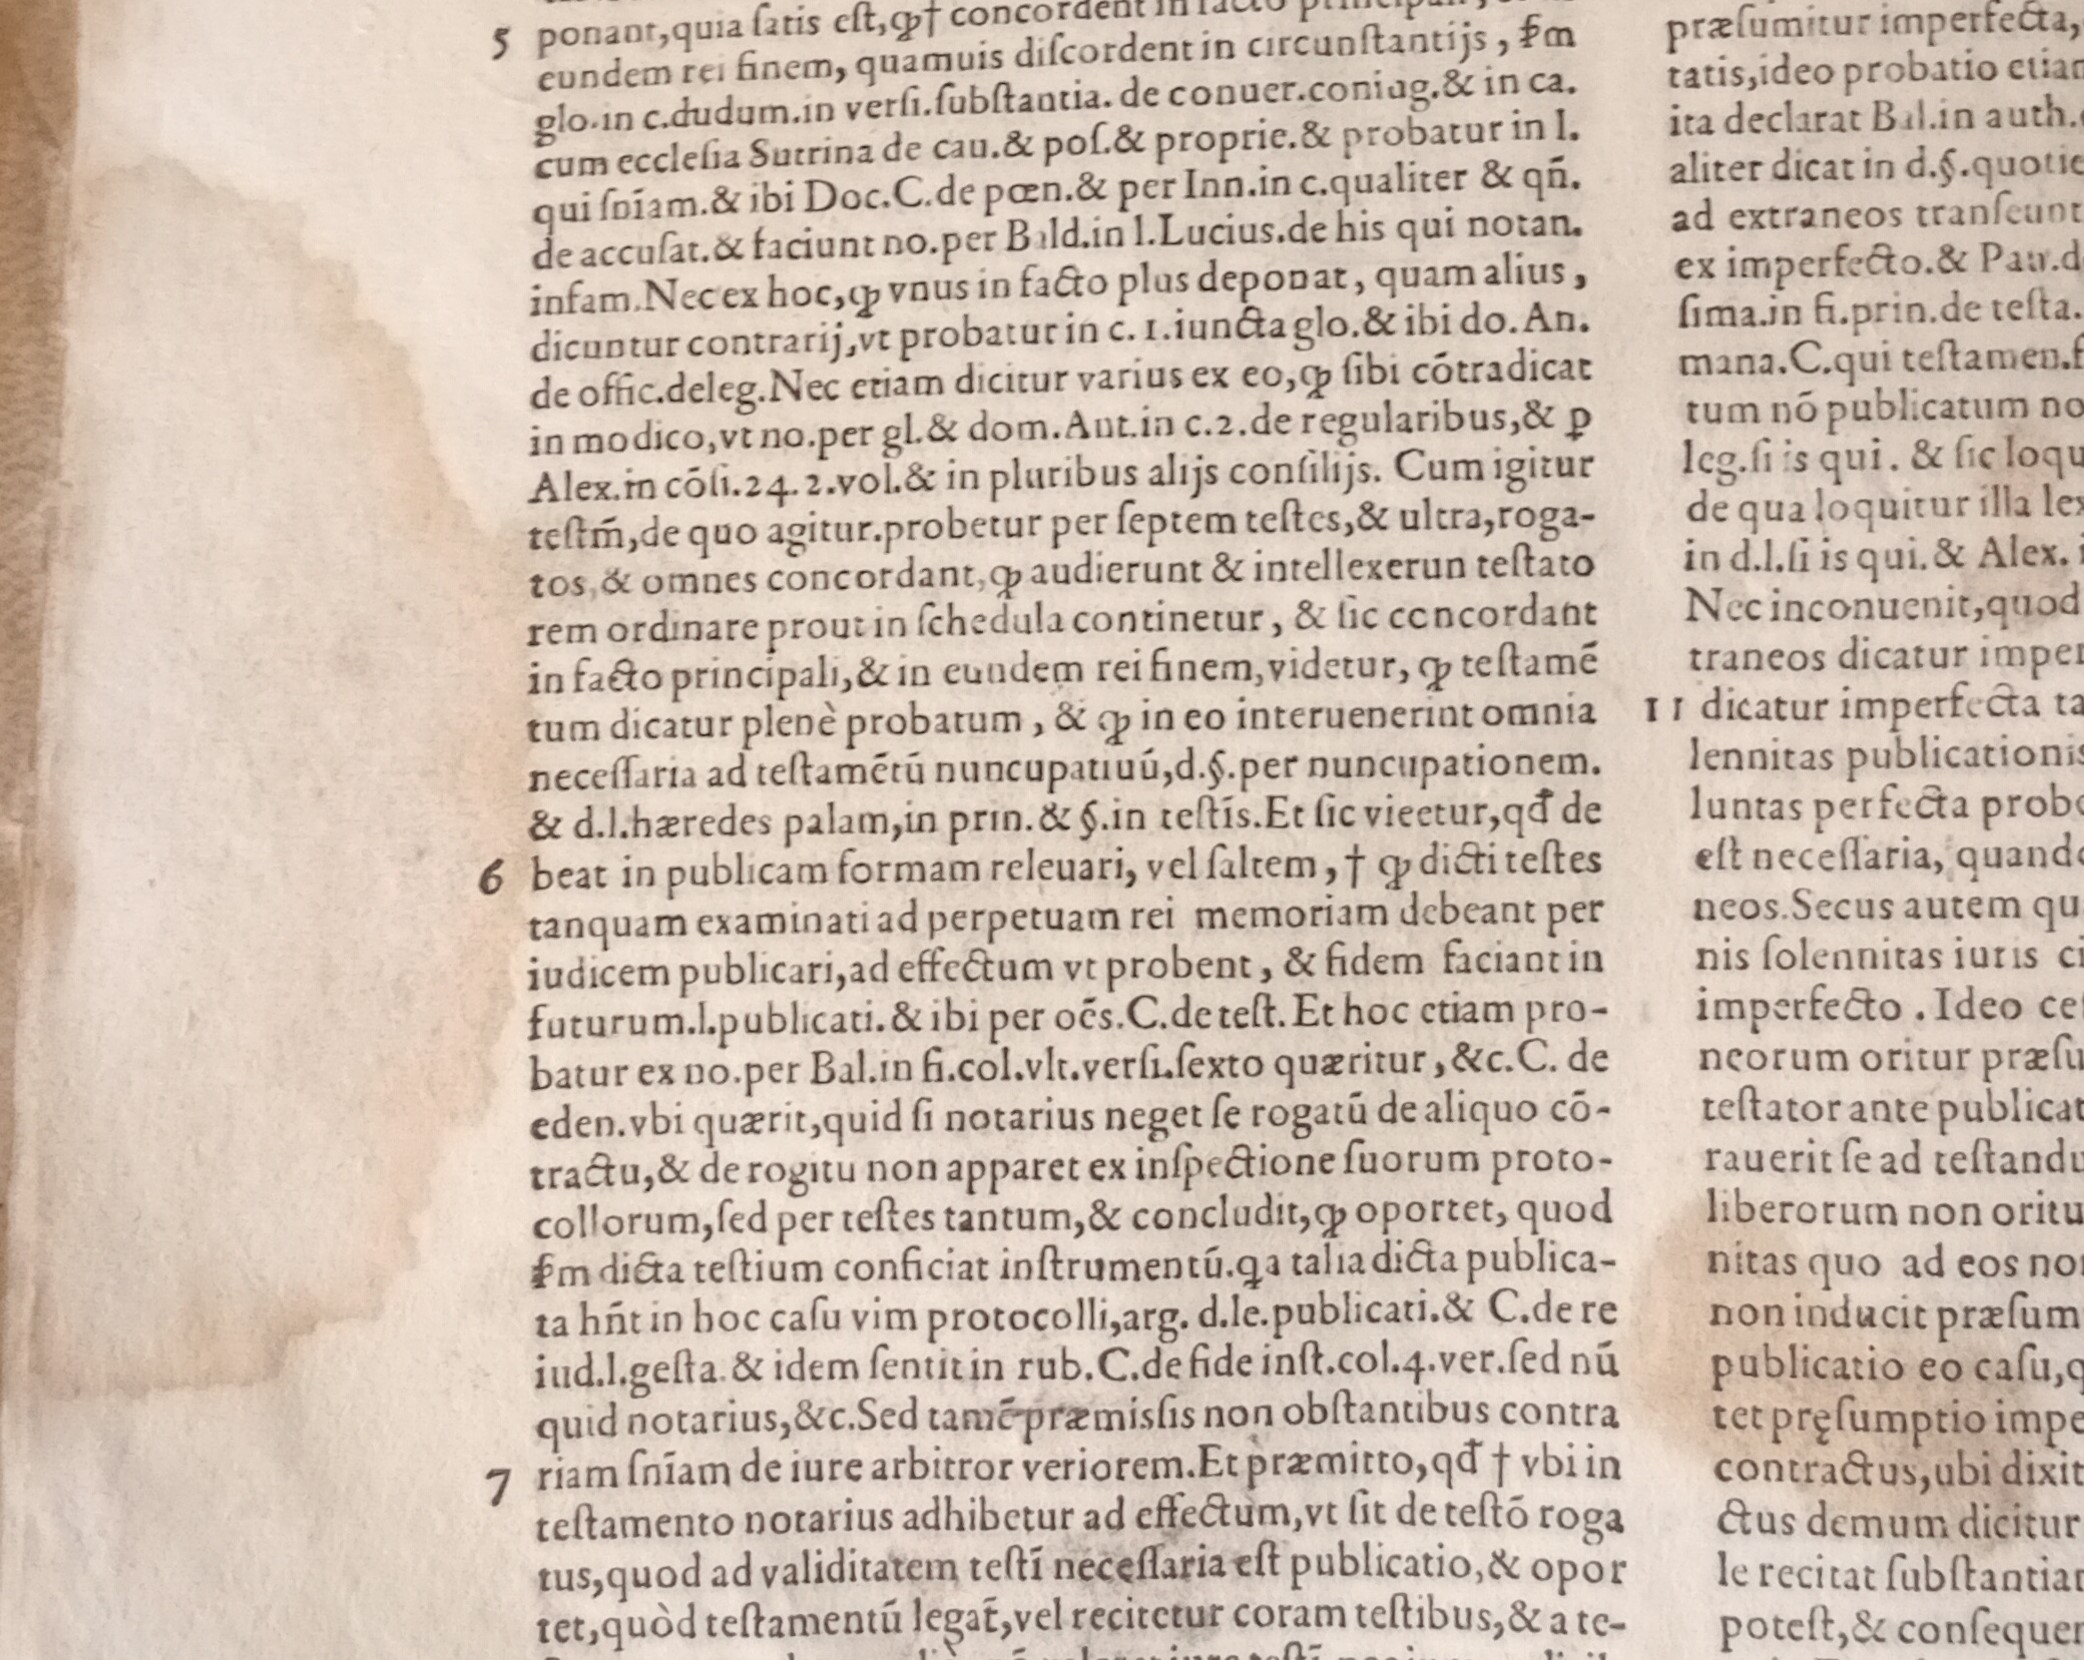 5 ponant,quia ſatis eſt,ꝙ† concordent in facto
eundem rei finem, quamuis diſcordent in circunſtantijs, ẜm
glo.in c.dudum.in verſi.ſubſtantia. de conuer.coniug.& in ca.
cum eccleſia Sutrina de cau.& poſ.& proprie.& probatur in l.
qui ſnĩam.& ibi Doc.C.de pœn.& per Inn.in c.qualiter & qñ.
de accuſat.& faciunt no.per Bald.in l.Lucius.de his qui notan.
infam.Nec ex hoc,ꝙ vnus in facto plus deponat, quam alius,
dicuntur contrarij,vt probatur in c. 1.iuncta glo.& ibi do. An.
de offic.deleg.Nec etiam dicitur varius ex eo,ꝙ ſibi cõtradicat
in modico,vt no.per gl.& dom.Ant.in c.2.de regularibus,& ꝑ
Alex.in cõſi.24.2.vol.& in pluribus alijs conſilijs. Cum igitur
teſtm̃,de quo agitur.probetur per ſeptem teſtes,& ultra,roga-
tos,& omnes concordant,ꝙ audierunt & intellexerun teſtato
rem ordinare prout in ſchedula continetur, & ſic concordant
in facto principali,& in eundem rei finem,videtur, ꝙ teſtamẽ
tum dicatur plenè probatum, & ꝙ in eo interuenerint omnia
neceſſaria ad teſtamẽtũ nuncupatiuũ,d.§.per nuncupationem.
& d.l.hæredes palam,in prin.& §.in teſtis.Et ſic vieetur,qđ de
6 beat in publicam formam releuari, vel ſaltem, † ꝙ dicti teſtes
tanquam examinati ad perpetuam rei memoriam debeant per
iudicem publicari,ad effectum vt probent, & fidem faciant in
futurum.l.publicati.& ibi per oẽs.C.de teſt.Et hoc etiam pro-
batur ex no.per Bal.in fi.col.vlt.verſi.ſexto quæritur,&c.C. de
eden.vbi quærit,quid ſi notarius neget ſe rogatũ de aliquo cõ-
tractu,& de rogitu non apparet ex inſpectione ſuorum proto-
collorum,ſed per teſtes tantum,& concludit,ꝙ oportet, quod
ẜm dicta teſtium conficiat inſtrumentũ.qa talia dicta publica-
ta hñt in hoc caſu vim protocolli,arg. d.le.publicati.& C.de re
iud.l.geſta.& idem ſentit in rub.C.de fide inſt.col.4.ver.ſed nũ
quid notarius,&c.Sed tamẽ præmiſsis non obſtantibus contra
7 riam ſnĩam de iure arbitror veriorem.Et præmitto,qđ † vbi in
teſtamento notarius adhibetur ad effectum,vt ſit de teſtõ roga
tus,quod ad validitatem teſtĩ neceſſaria eſt publicatio,& opor
tet,quòd teſtamentũ legat̃,vel recitetur coram teſtibus,& a te-
præſumitur imperfecta,
tatis,ideo probatio
ita declarat Bal.in auth.
aliter dicat in d.§.
ad extraneos tranſeunt
ex imperfecto.& Pau.d
ſima.in fi.prin.de teſta.
mana.C.qui teſtamen.
tum nõ publicatum no
leg.ſi is qui. & ſic
de qua loquitur illa lex
in d.l.ſi is qui.& Alex.
Nec inconuenit,quod
traneos dicatur
11 dicatur imperfecta
lennitas publicationis
luntas perfecta
eſt neceſſaria,
neos.Secus autem
nis ſolennitas iuris
imperfecto. Ideo
neorum oritur
teſtator ante
rauerit ſe ad
liberorum non
nitas quo ad eos
non inducit
publicatio eo caſu,
tet pręſumptio
contractus,ubi
ctus demum dicitur
le recitat
poteſt,&